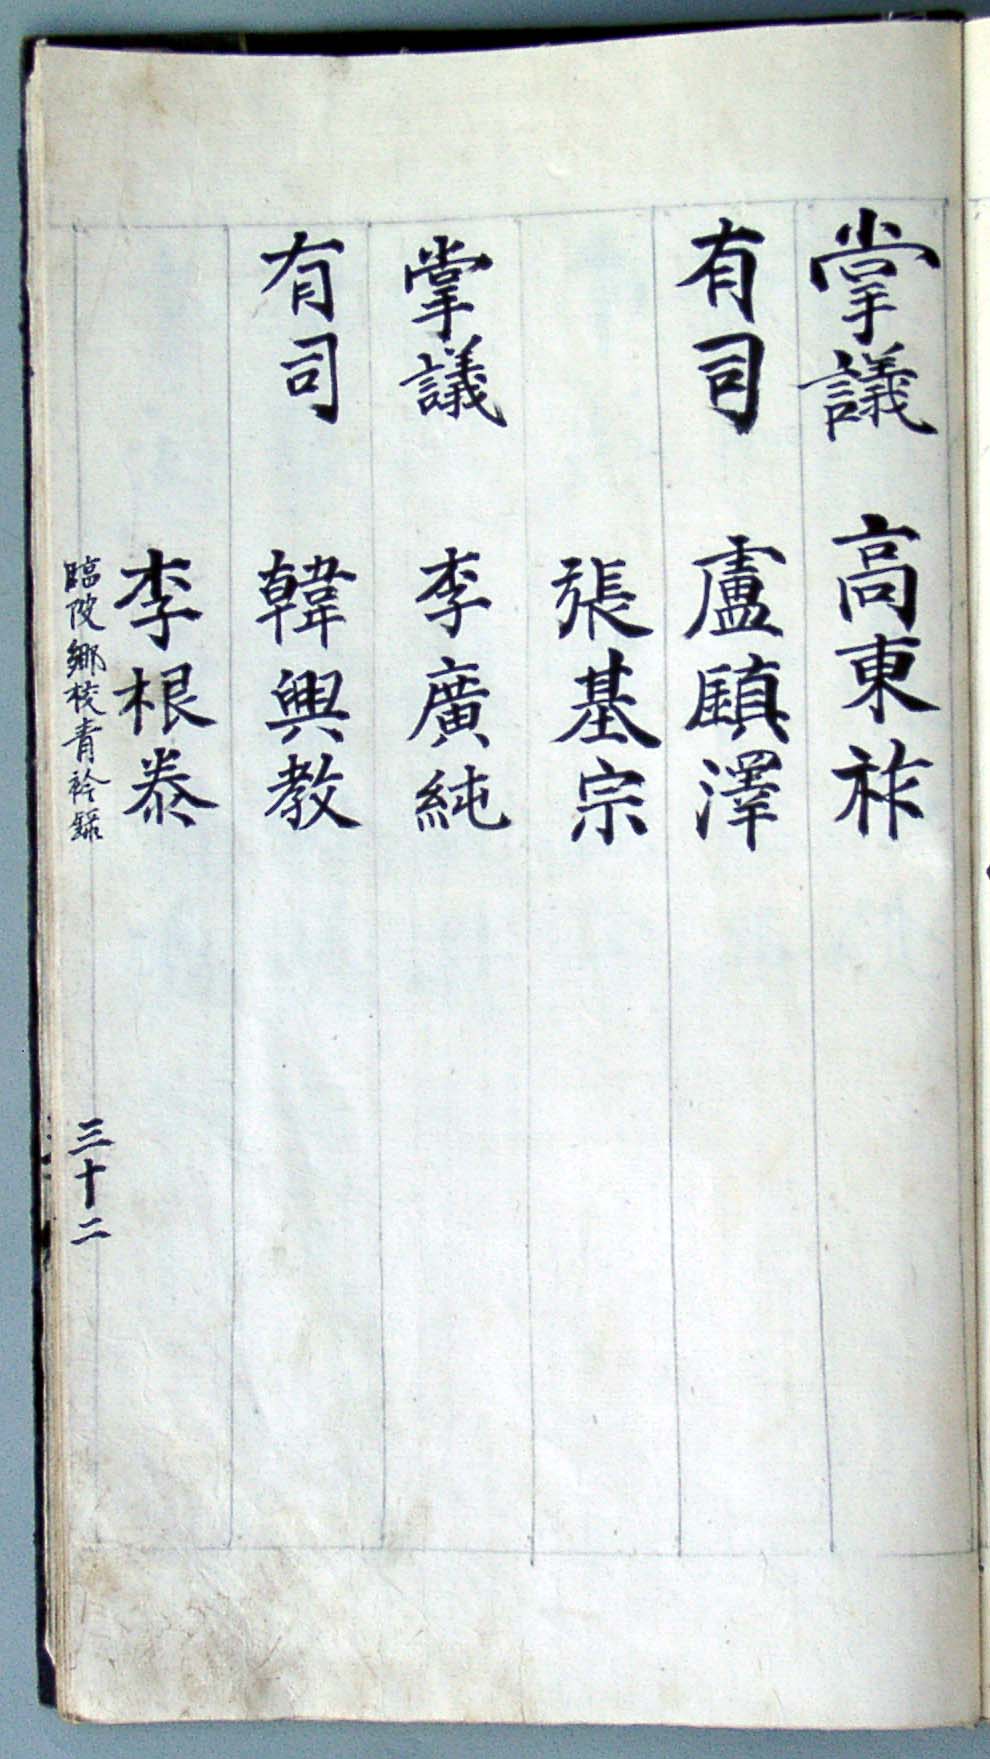 掌議 高東祚
有司 盧鎭澤
張基宗
掌議 李廣純
有司 韓興教
李根泰
臨陂鄕校青衿錄
三十二